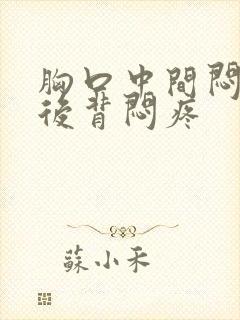 胸口中間悶
後背悶疼
蘇小禾